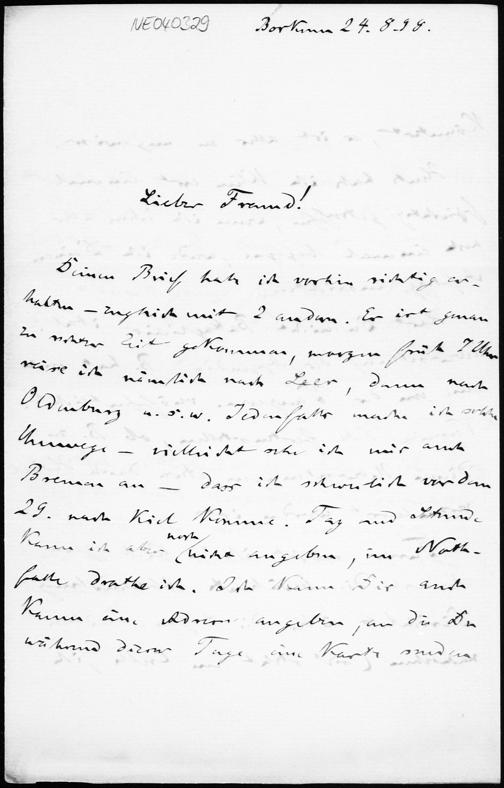 NE040329
Borkum 24. 8. 98.
Lieber Freund!
Deinen Brief habe ich vorhin richtig er-
halten – zugleich mit 2 andern. Er ist genau
zu rechter Zeit gekommen, morgen früh 7 Uhr
reise ich nämlich nach Leer, dann nach
Oldenburg u. s. w. Jedenfalls mache ich solche
Umwege – vielleicht sehe ich mir auch
Bremen an – dass ich schwerlich vor dem
29. nach Kiel komme. Tag und Stunde
kann ich aber noch nicht angeben, im Noth-
falle drahte ich. Ich kann Dir auch
kaum eine Adresse angeben, an die Du
während dieser Tage eine Karte senden